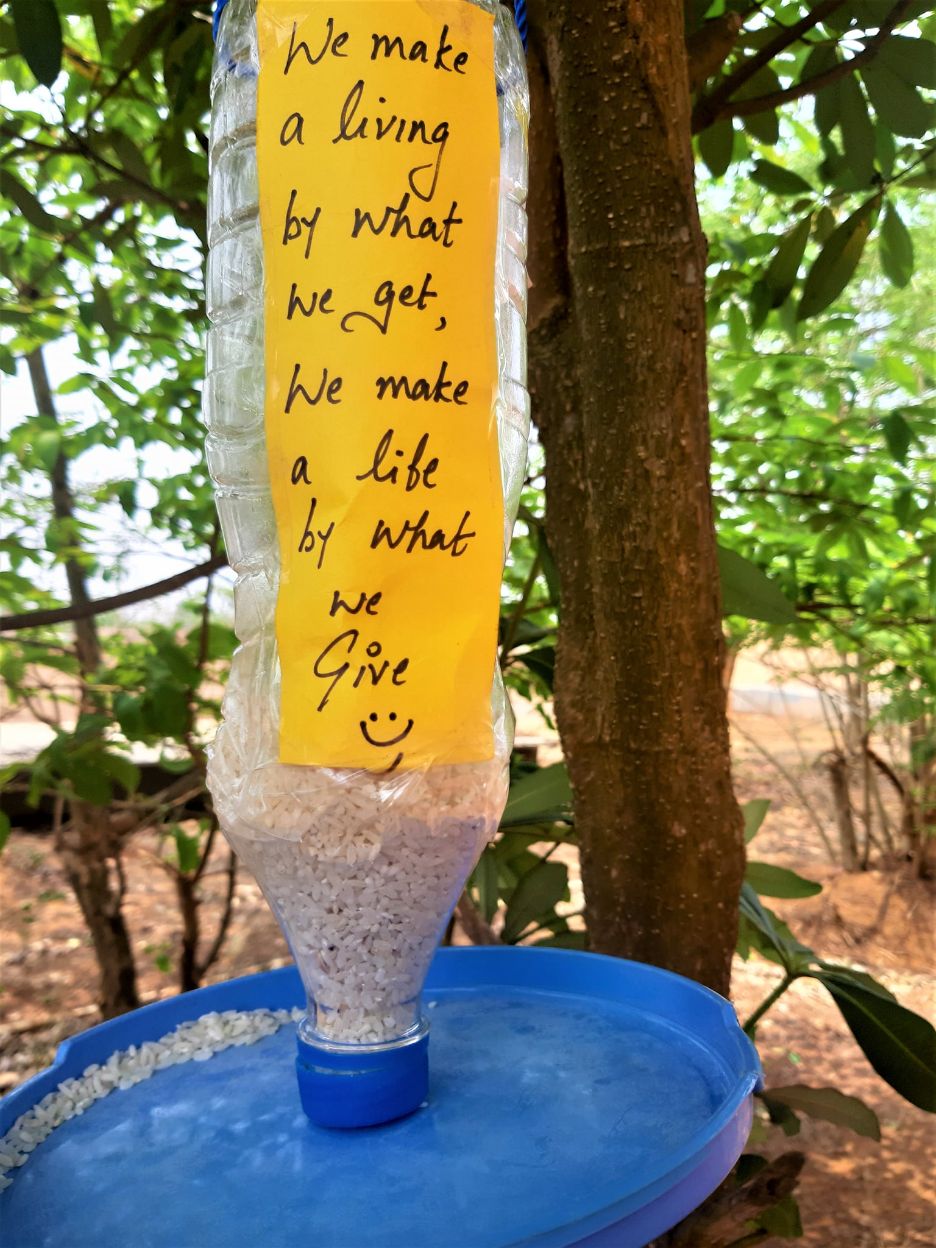 We make
a living
by what
we get,
We make
a life
by what
we
Give